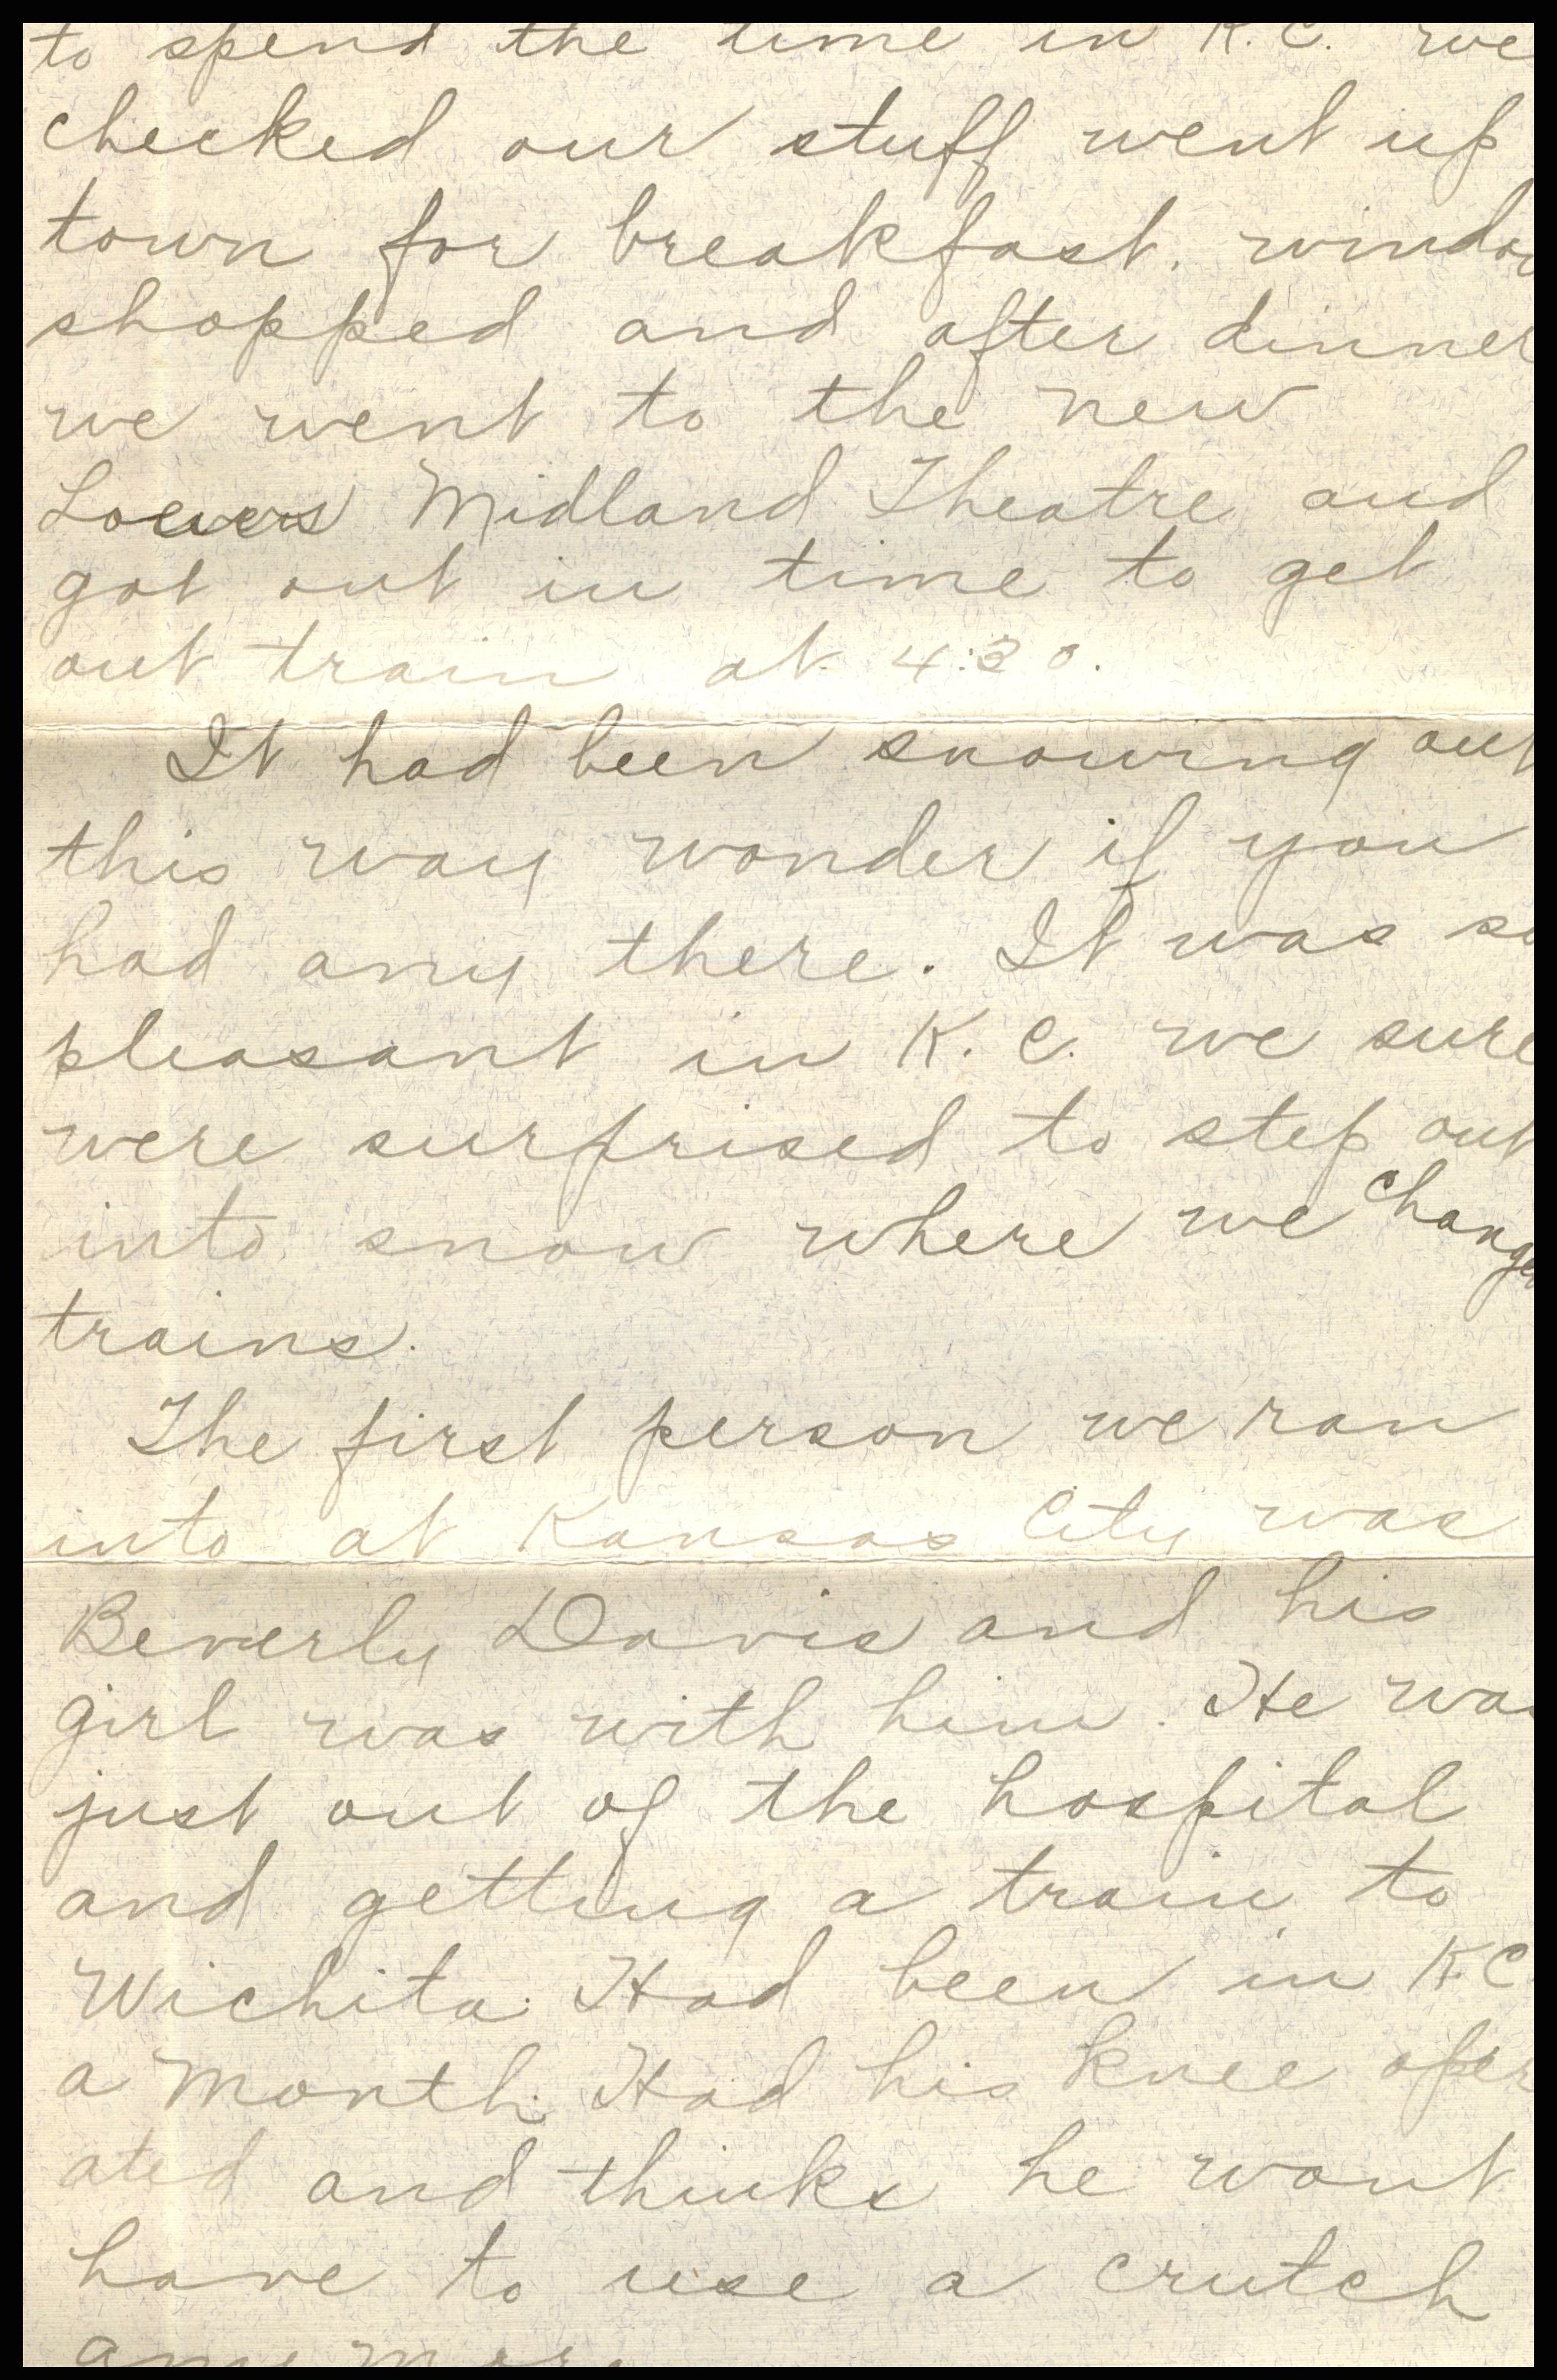 to spend the time in K.C. we
checked our stuff went up
town for breakfast. window
shopped and after dinner
we went to the new
Loewers Midland Theatre and
got out in time to get
out train at 4:30.
It had been snowing out
this way wonder if you
had any there. It was so
pleasant in K. C. we sure
were surprised to step out
into snow where we change
trains.
The first person we ran
into at Kansas City was
Beverly Davis and his
girl was with him. He was
just out of the hospital
and getting a train to
Wichita. Had been in K.C
a month. Had his knee oper
ated and thinks he wont
have to use a crutch
any more